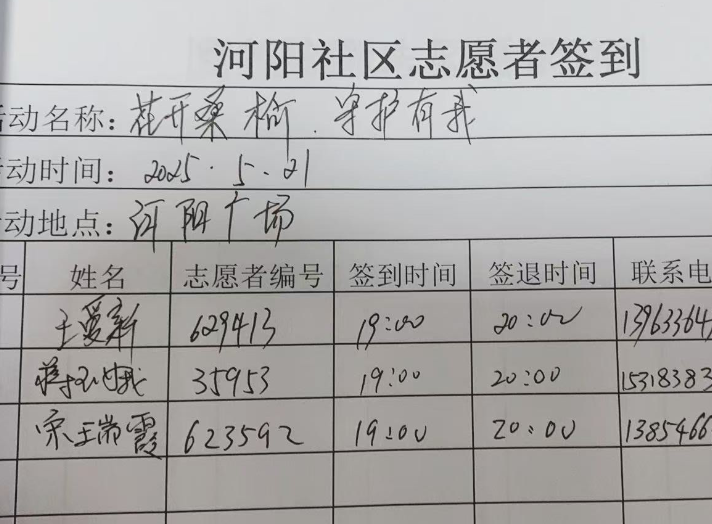 河阳社区志愿者签到
活动名称：花开桑榆.守护有我
动时间：2025.5.21
动地点：河阳广场
号 姓名 志愿者编号 签到时间 签退时间 联系电
王爱新 629413 19:00 20:00 13963364
35953 19:00 20:00 15318383
宋瑞霞 623592 19:00 20:00 1385466